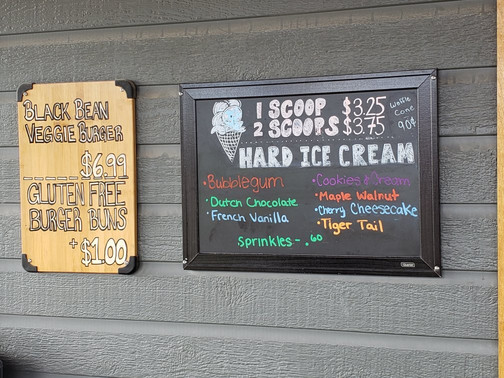 BLACK BEAN
VEGGIE BURGER
$6.99
GLUTEN FREE
BURGER BUNS
+ $1.00
1 SCOOP $3.25
2 SCOOPS $3.75
Waffle
Cone
90¢
HARD ICE CREAM
• Bubblegum
• Dutch Chocolate
• French Vanilla
• Cookies & Cream
• Maple Walnut
• Cherry Cheesecake
• Tiger Tail
Sprinkles - .60